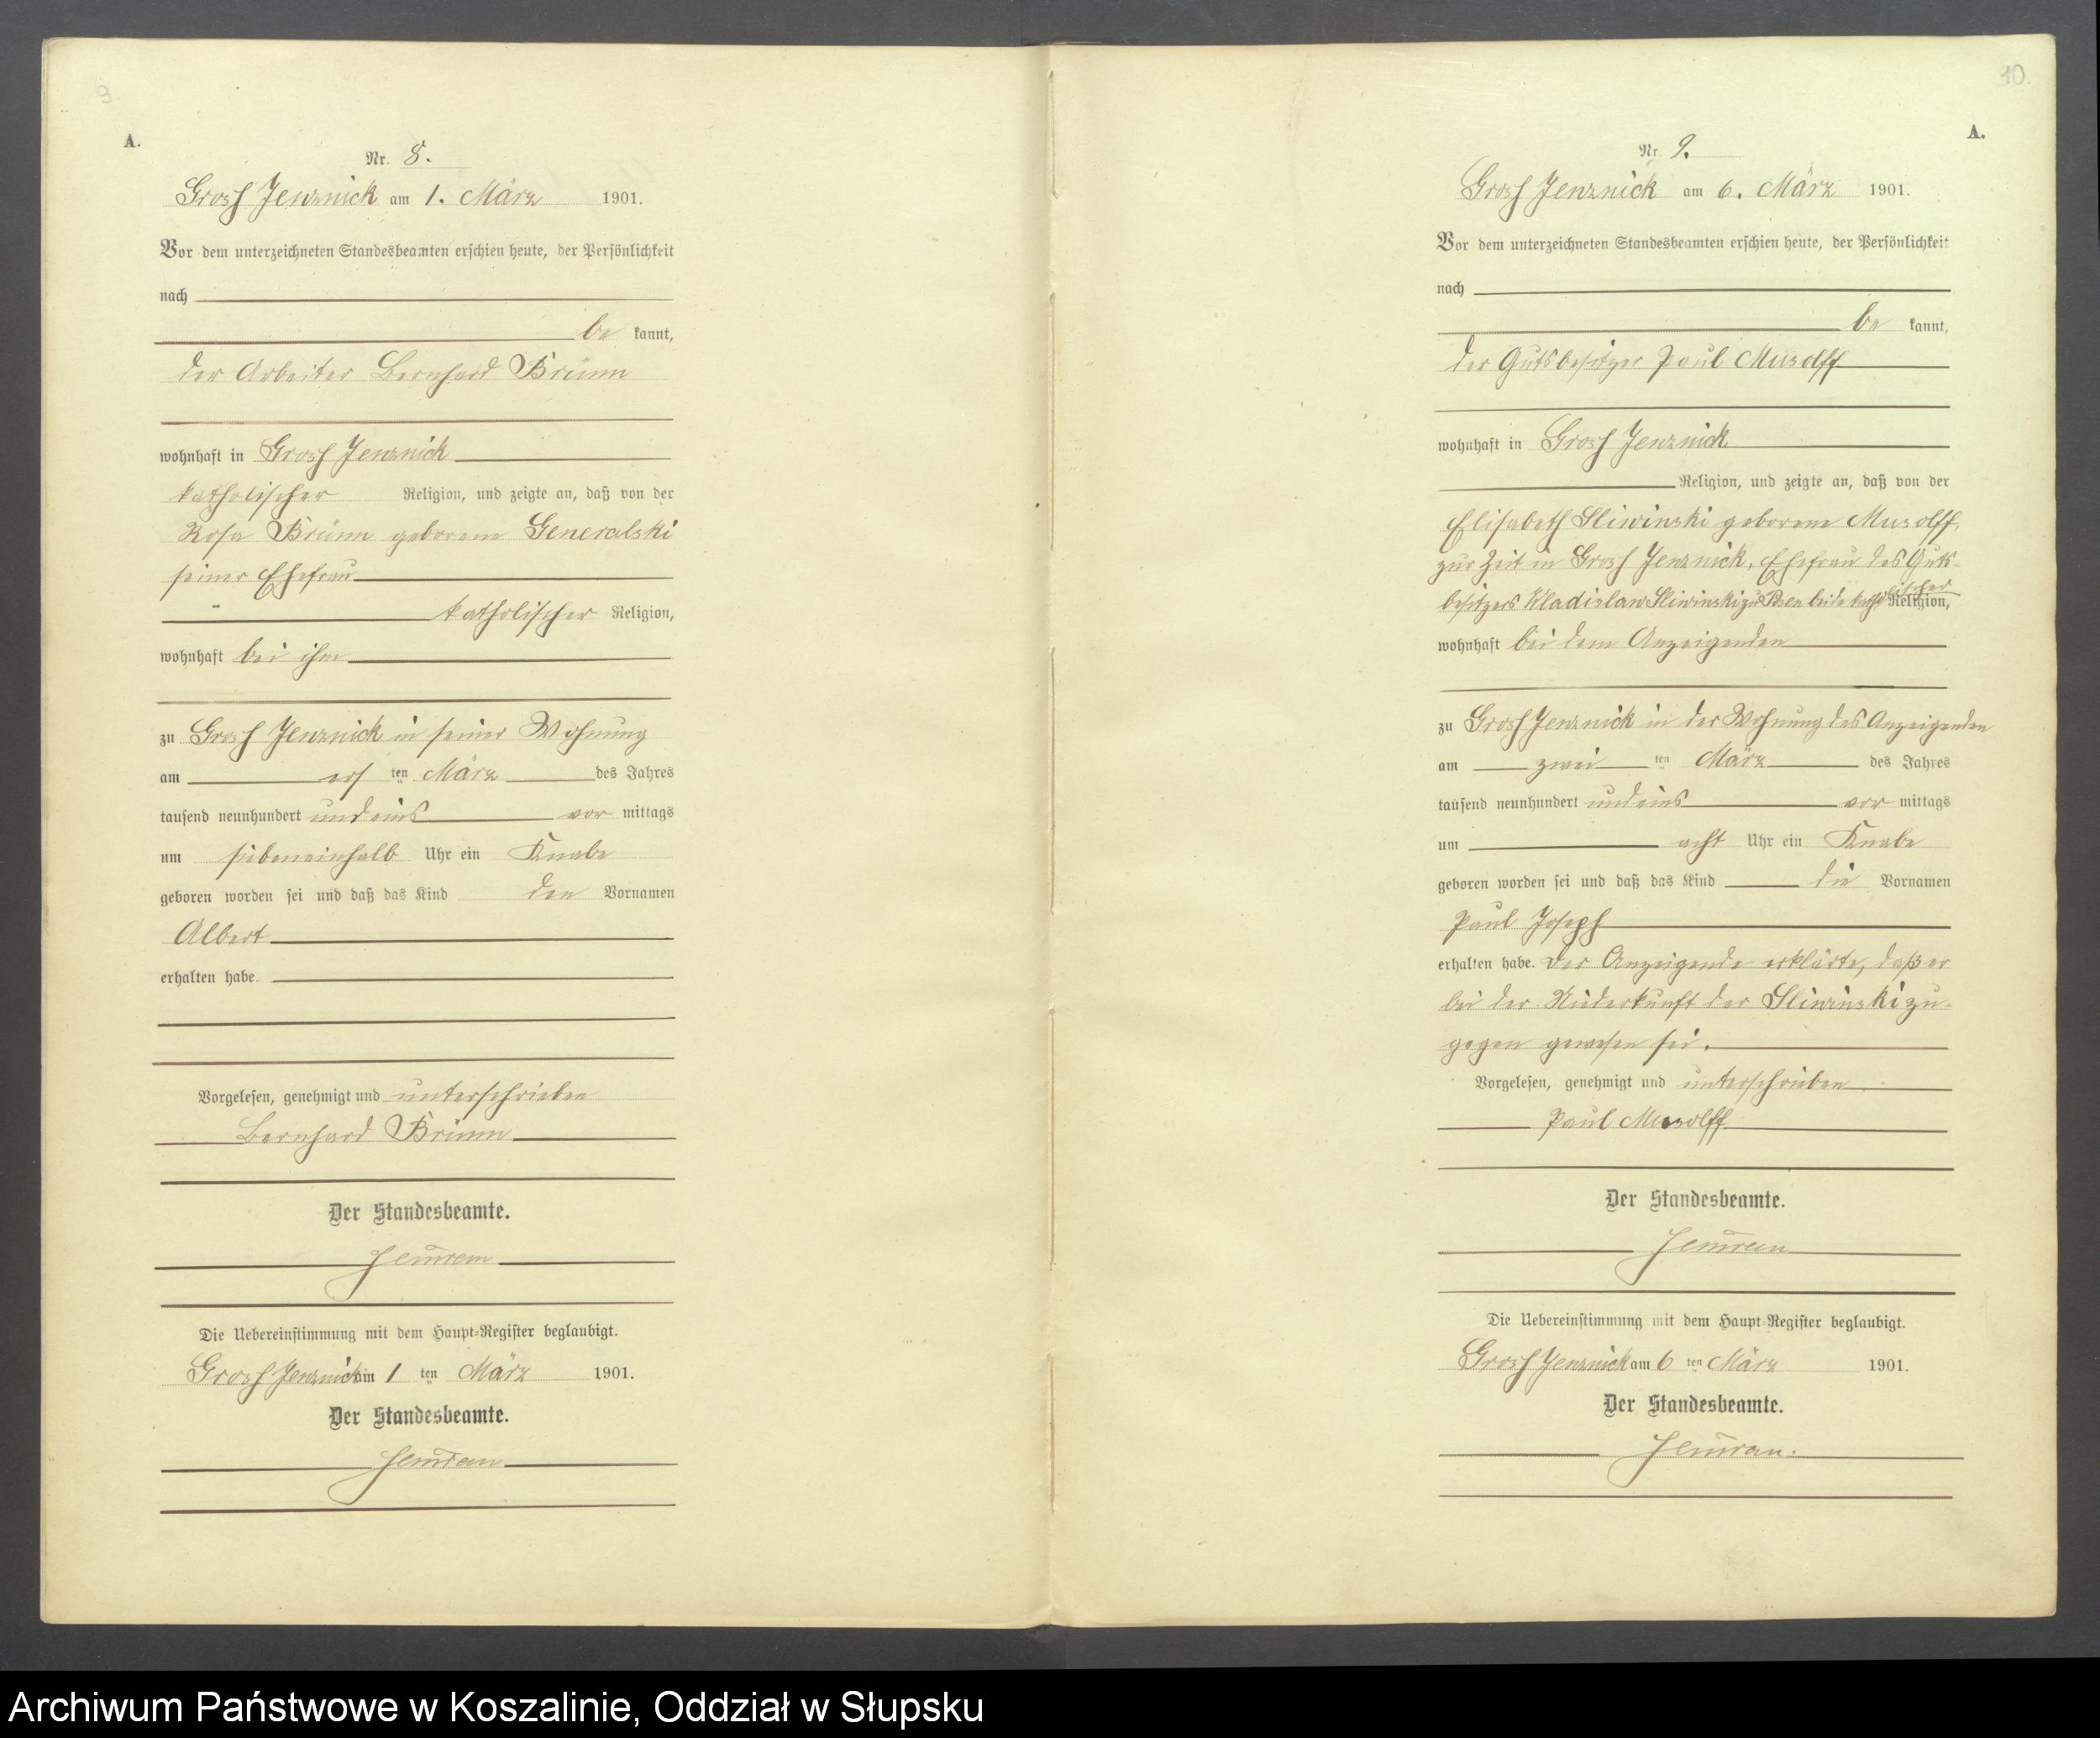 9.
A.
Nr. 8.
Grosz Jenznick am 1. März 1901.
Vor dem unterzeichneten Standesbeamten erschien heute, der Persönlichkeit
nach
be kannt,
der Arbeiter Bernhard Brünn
wohnhaft in Grosz Jenznick
katholischer Religion, und zeigte an, daß von der
Rosa Brünn geborene Generalski
seiner Ehefrau
katholischer Religion,
wohnhaft bei ihm
zu Grosz Jenznick in seiner Wohnung
am ersten März des Jahres
tausend neunhundert und eins vor mittags
um siebeneinhalb Uhr ein Knabe
geboren worden sei und daß das Kind den Vornamen
Albert
erhalten habe.
Vorgelesen, genehmigt und unterschrieben
Bernhard Brünn
Der Standesbeamte.
Die Uebereinstimmung mit dem Haupt-Register beglaubigt.
Grosz Jenznick am 1 ten März 1901.
Der Standesbeamte.
10.
A.
Nr. 9.
Grosz Jenznick am 6. März 1901.
Vor dem unterzeichneten Standesbeamten erschien heute, der Persönlichkeit
nach
be kannt,
der Gutsbesitzer Paul Musolff
wohnhaft in Grosz Jenznick
Religion, und zeigte an, daß von der
Elisabeth Sliwinski geborene Musolff,
zur Zeit in Grosz Jenznick, Ehefrau des Guts-
besitzers Wladislaw Sliwinski zu Posen beide katholischer Religion,
wohnhaft bei dem Anzeigenden
zu Grosz Jenznick in der Wohnung des Anzeigenden
am zwei ten März des Jahres
tausend neunhundert und eins vor mittags
um acht Uhr ein Knabe
geboren worden sei und daß das Kind die Vornamen
Paul Joseph
erhalten habe. Der Anzeigende erklärte, daß er
bei der Niederkunft der Sliwinski zu-
gegen gewesen sei.
Vorgelesen, genehmigt und unterschrieben
Paul Musolff
Der Standesbeamte.
Die Uebereinstimmung mit dem Haupt-Register beglaubigt.
Grosz Jenznick am 6 ten März 1901.
Der Standesbeamte.
Archiwum Państwowe w Koszalinie, Oddział w Słupsku